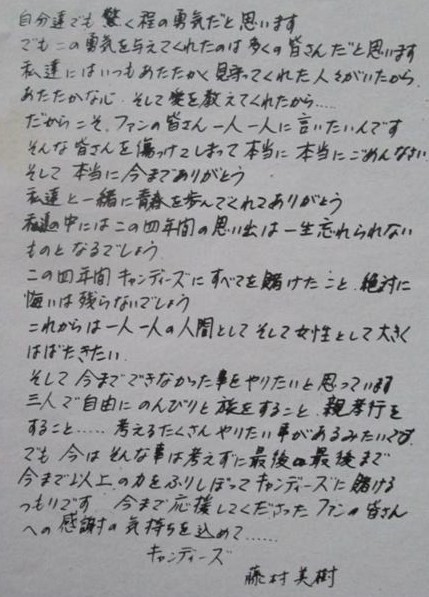 自分達でも驚く程の勇気だと思います
でもこの勇気を与えてくれたのは多くの皆さんだと思います
私達にはいつもあたたかく見守ってくれた人々がいたから
あたたかな心、そして愛を教えてくれたから……
だからこそ、ファンの皆さん一人一人に言いたいんです
そんな皆さんを傷つけてしまって本当に本当にごめんなさい
そして本当に今までありがとう
私達と一緒に青春を歩んでくれてありがとう
私達の中にはこの四年間の思い出は一生忘れられない
ものとなるでしょう
この四年間キャンディーズにすべてを賭けたこと、絶対に
悔いは残らないでしょう
これからは一人一人の人間としてそして女性として大きく
はばたきたい
そして今までできなかった事をやりたいと思っています
三人で自由にのんびりと旅をすること、親孝行を
すること……考えるたくさんやりたい事があるみたいです
でも今はそんな事は考えずに最後の最後まで
今まで以上の力をふりしぼってキャンディーズに賭ける
つもりです 今まで応援してくださったファンの皆さん
への感謝の気持ちを込めて……
キャンディーズ
藤村美樹